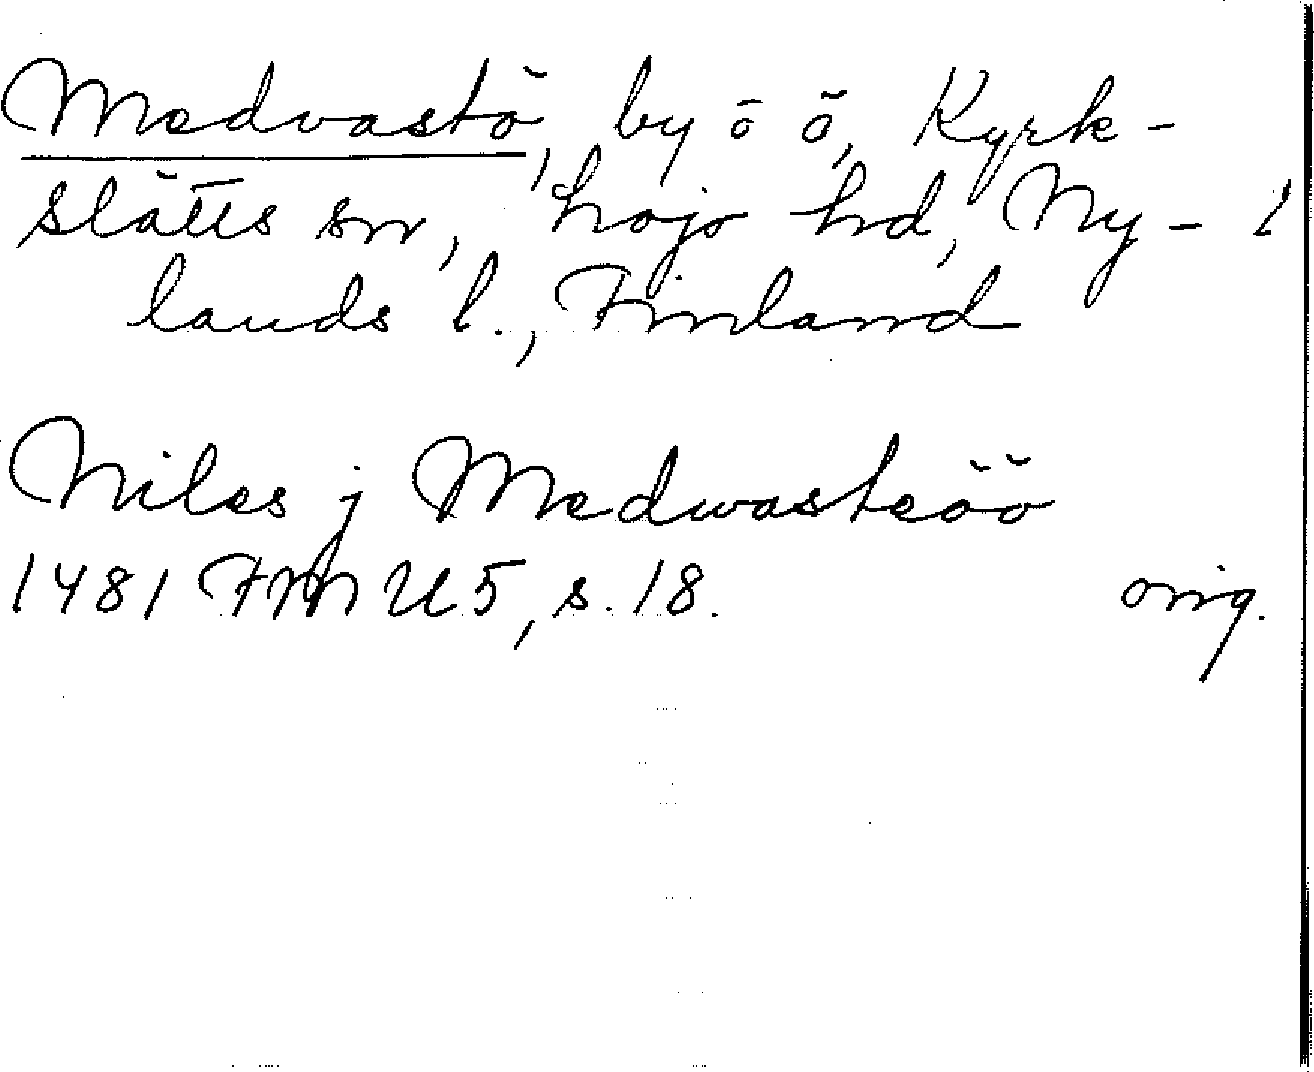 Medvastö, by å ö, Kyrk-
slätts sn, Lojo hd, Ny-
lands l., Finland
Niles j Medwasteöö
1481 FMU 5, s. 18. orig.